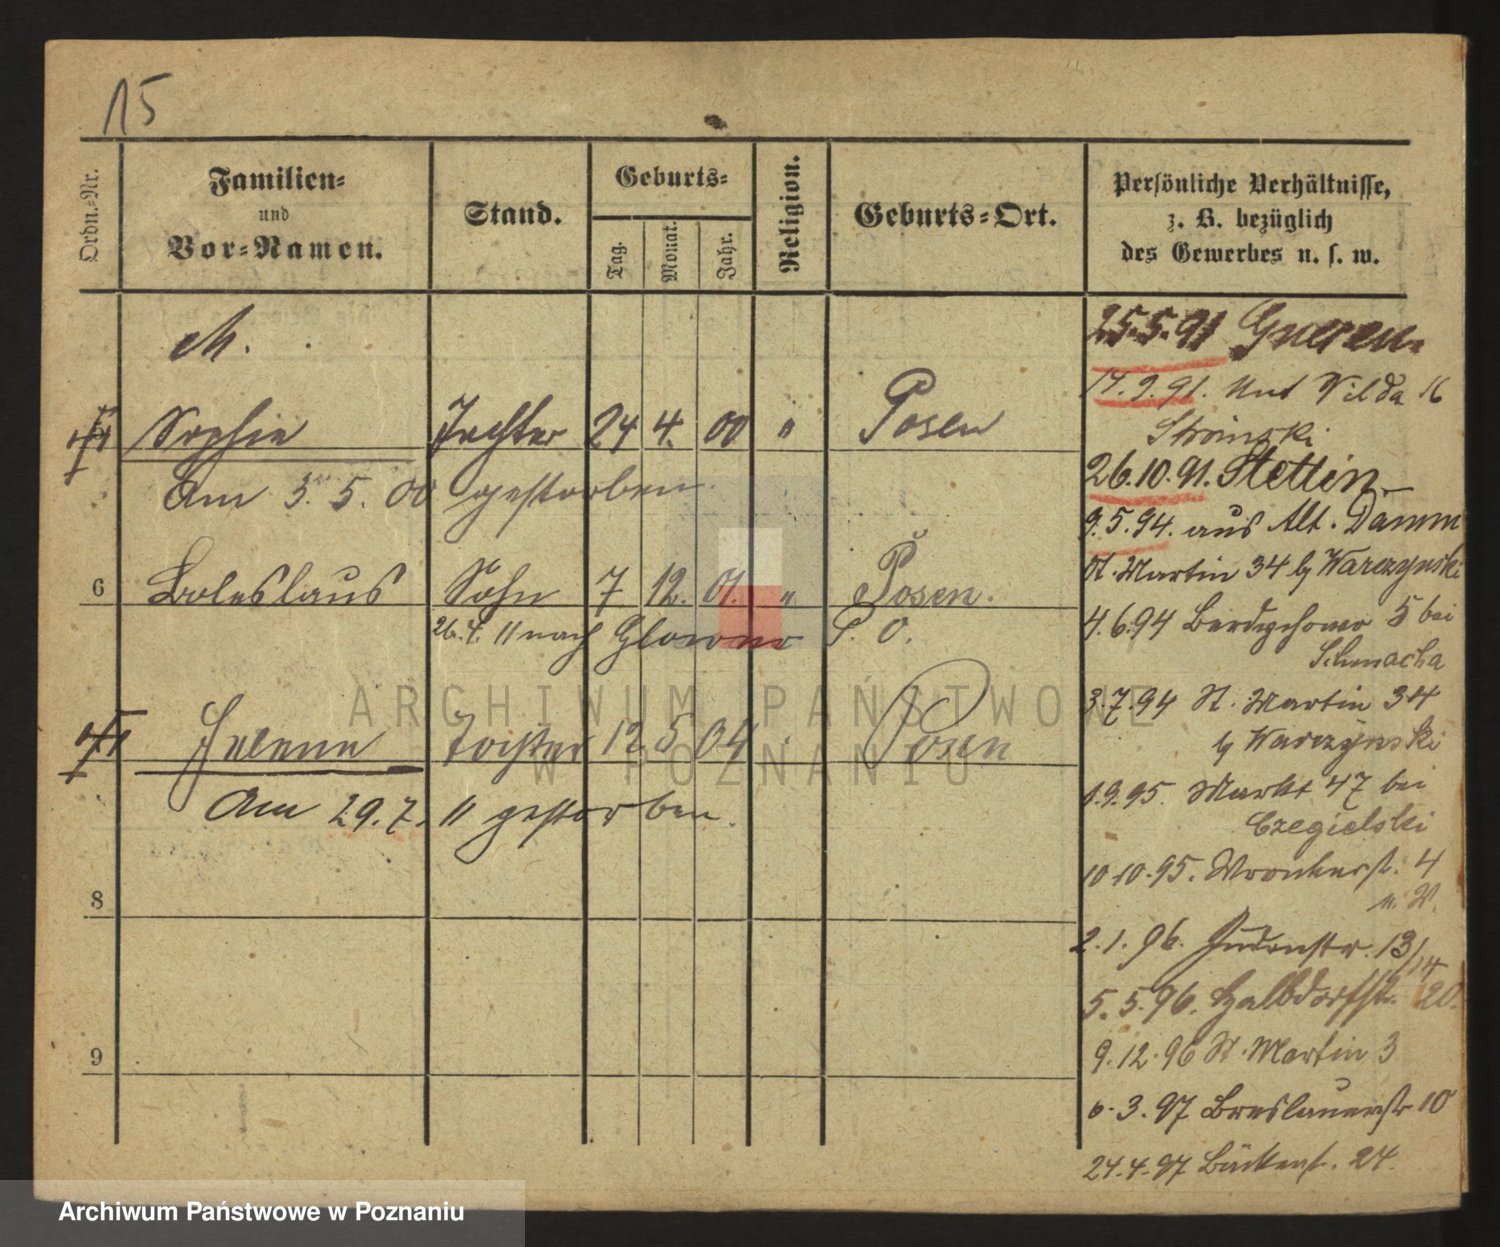 15
Ordn.-Nr.
Familien-
und
Vor-Namen.
Stand.
Geburts-
Tag.
Monat.
Jahr.
Religion.
Geburts-Ort.
Persönliche Verhältnisse,
z. B. bezüglich
des Gewerbes u. s. w.
Sophie Tochter 24 4. 00 " Posen
Am 5. 5. 00 gestorben
6 Boleslaus Sohn 7 12. 01. " Posen.
26. 4. 11 nach P. O.
Helene Tochter 12 5 04 Posen
Am 29. 7. 11 gestorben.
8
9
25.5.91 Gnesen.
17.9.91. Unt Wilda 16
26.10.91. Stettin
9.5.94. aus Alt. Damm
St. Martin 34 b Warczynski
4.6.94 5 bei
3.7.94 St. Martin 34
b Warczynski
1.9.95. Markt 47 bei
Czegielski
10.10.95. Wronkerst. 4
2.1.96. Judenstr. 13/14
5.5.96. Halbdorfstr. 20.
9.12.96 St. Martin 3
3.97 Breslauerstr 10
24.4.97 Bäckerst. 24.
ARCHIWUM PAŃSTWOWE
W POZNANIU
Archiwum Państwowe w Poznaniu